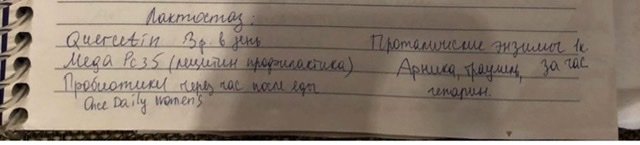 Лактостаз:
Quercetin 3р. в день
Мега Pc35 (лецитин профилактика)
Пробиотики через час после еды
One Daily Women's
Протеолические энзимы 1к.
за час
Арника, траумель,
гепарин.